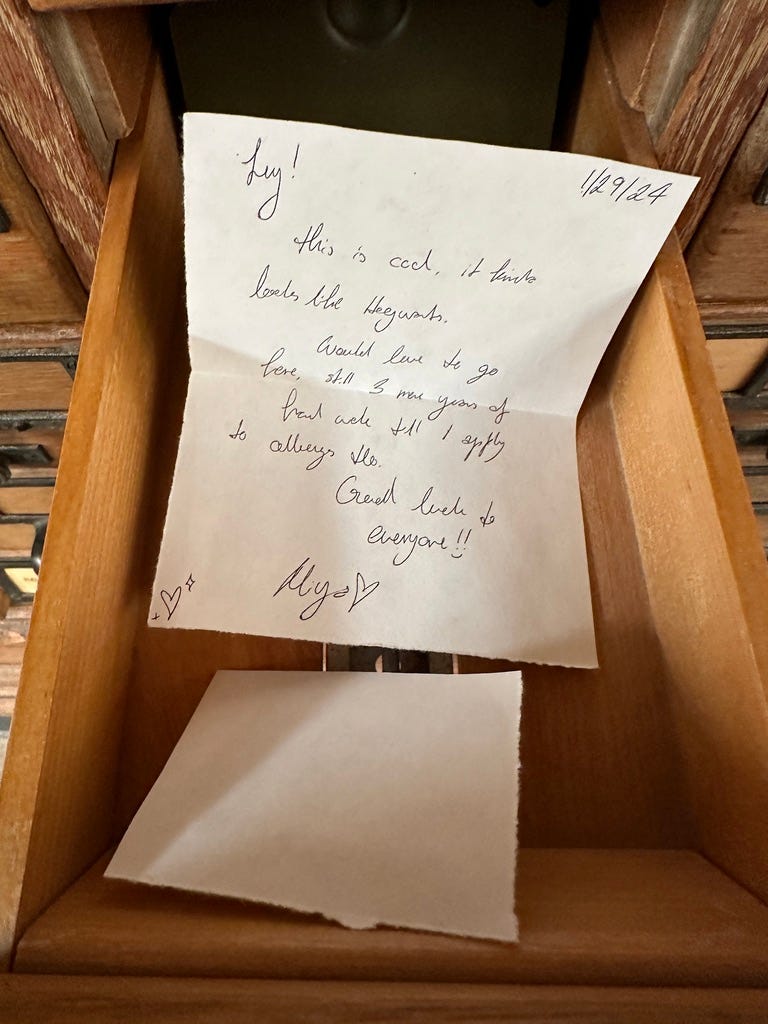 Hey!
1/29/24
this is cool, it kinda
looks like Hogwarts.
Would love to go
here, still 3 more years of
hard work till I apply
to colleges tho.
Good luck to
everyone!!